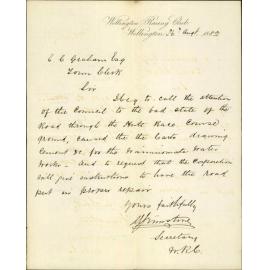 Wellington Racing Club
Wellington, 26th Augt. 1882
C. C. Graham Esq
Town Clerk
Sir
I beg to call the attention
of the Council to the bad state of the
Road through the Hutt Race Course
ground, caused by the Carts drawing
Cement &c. for the Wainuiomata Water
Works – and to request that the Corporation
will give instructions to have the road
put in proper repair
Yours faithfully
Secretary
W.R.C.